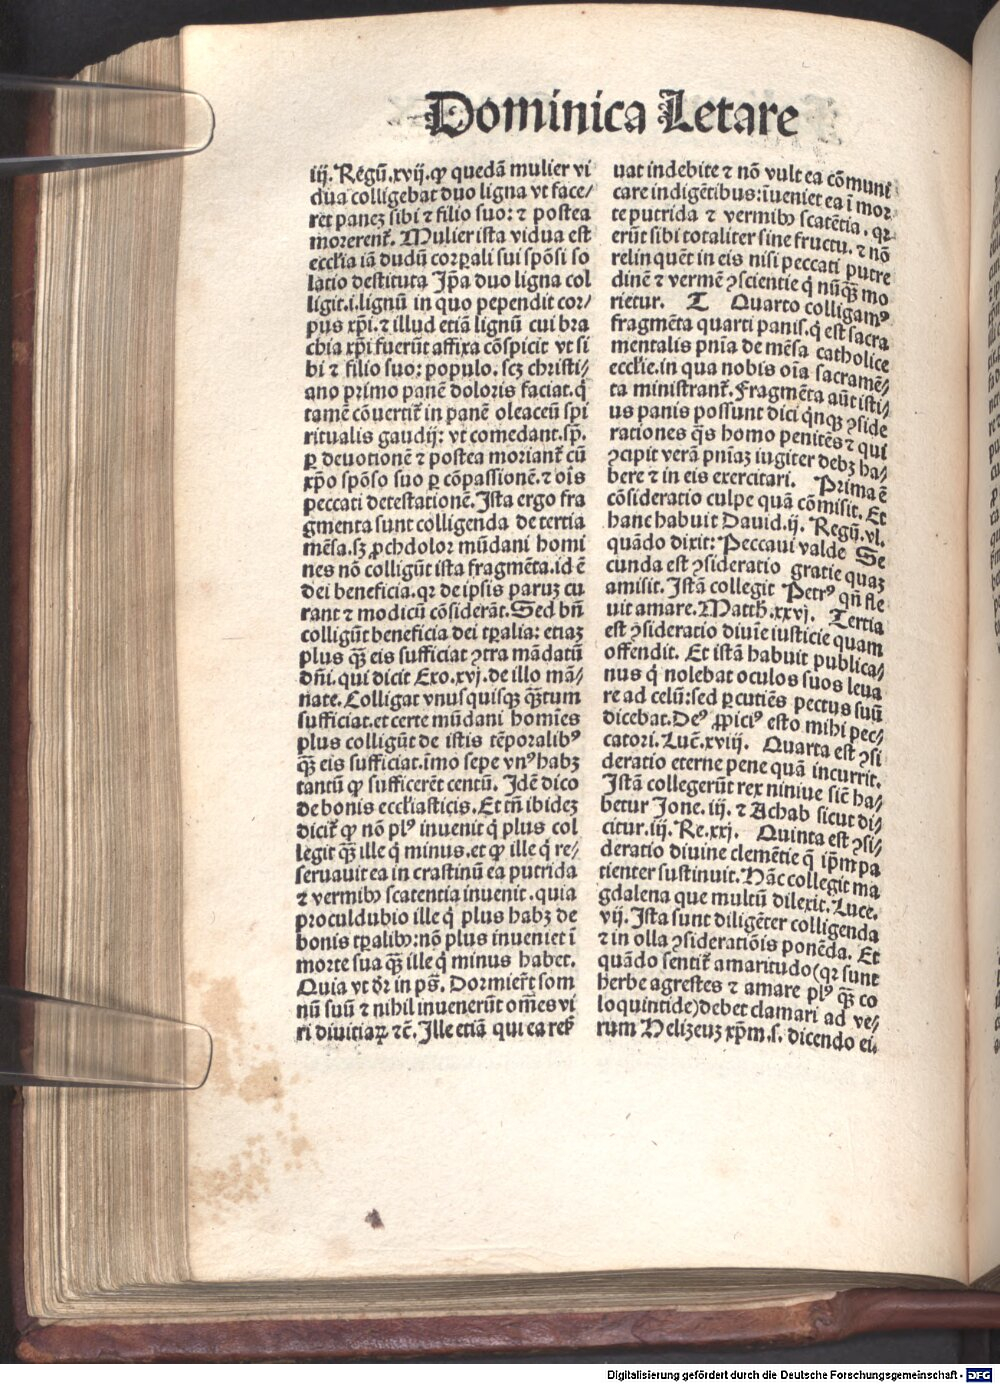 Dominica Letare
iij. Regū.xvij. ꝙ quedā mulier vi
dua colligebat duo ligna vt face/
ret panez sibi ⁊ filio suo: ⁊ postea
morerent᷑. Mulier ista vidua est
eccl'ia iā dudū corꝑali sui spōsi so
latio destituta Ip̄a duo ligna col
ligit.i.lignū in quo pependit cor/
pus xp̄i.⁊ illud etiā lignū cui bra
chia xp̄i fuerūt affixa cōspicit vt si
bi ⁊ filio suo: populo. scz christi/
ano primo panē doloris faciat.q̇
tamē cōuertit᷑ in panē oleaceū spi
ritualis gaudij: vt comedant.sp̄.
ꝑ deuotionē ⁊ postea moriant᷑ cū
xp̄o spōso suo ꝑ cōpassionē.⁊ oīs
peccati detestationē. Ista ergo fra
gmenta sunt colligenda de tertia
mēsa.sꝫ ꝓchdolor mūdani homi
nes nō colligūt ista fragmēta.id ē
dei beneficia.qꝛ de ipsis paruz cu
rant ⁊ modicū cōsiderāt. Sed bn̄
colligūt beneficia dei tꝑalia: etiaꝫ
plus qꝫ̄ eis sufficiat ꝯtra mādatū
dn̄i. qui dicit Exo.xvj. de illo mā/
nate. Colligat vnusquisqꝫ qꝫ̄tum
sufficiat.et certe mūdani homīes
plus colligūt de istis tēporalibꝰ
qꝫ̄ eis sufficiat.īmo sepe vnꝰ habꝫ
tantū ꝙ sufficerēt centū. Idē dico
de bonis eccl'iasticis. Et tn̄ ibideꝫ
dicit᷑ ꝙ nō plꝰ inuenit q̇ plus col
legit qꝫ̄ ille q̇ minus.et ꝙ ille q̇ re/
seruauit ea in crastinū ea putrida
⁊ vermibꝫ scatentia inuenit.quia
proculdubio ille q̇ plus habꝫ de
bonis tꝑalibꝫ: nō plus inueniet ī
morte sua qꝫ̄ ille q̇ minus habet.
Quia vt dr̄ in ps̄. Dormier̄t som
nū suū ⁊ nihil inuenerūt om̄es vi
ri diuitiaꝝ ⁊c̄. Ille etiā qui ea reẜ
uat indebite ⁊ nō vult ea cōmuni
care indigētibus: īueniet ea ī mor
te putrida ⁊ vermibꝫ scatētia. qꝛ
erūt sibi totaliter sine fructu.⁊ nō
relinquēt in eis nisi peccati putre
dinē ⁊ vermē ꝯscientie q̇ nūqꝫ̄ mo
rietur. T Quarto colligamꝰ
fragmēta quarti panis.q̇ est sacra
mentalis pn̄ia de mēsa catholice
eccl'ie.in qua nobis oīa sacramē/
ta ministrant᷑. Fragmēta aūt isti/
us panis possunt dici qnqꝫ ꝯside
rationes q̄s homo penitēs ⁊ qui
ꝯcipit verā pn̄iaꝫ iugiter debꝫ ha/
bere ⁊ in eis exercitari. Prima ē
cōsideratio culpe quā cōmisit. Et
hanc habuit Dauid.ij. Regū.vl.
quādo dixit: Peccaui valde Se
cunda est ꝯsideratio gratie quaꝫ
amisit. Istā collegit Petrꝰ qn̄ fle
uit amare. Matth.xxvj. Tertia
est ꝯsideratio diuīe iusticie quam
offendit. Et istā habuit publica/
nus q̇ nolebat oculos suos leua
re ad celū: sed ꝑcutiēs pectus suū
dicebat. Deꝰ ꝓpiciꝰ esto mihi pec/
catori. Luc̄.xviij. Quarta est ꝯsi
deratio eterne pene quā incurrit.
Istā collegerūt rex niniue sic̄ ha/
betur Jone.iij. ⁊ Achab sicut di/
citur.iij. Re.xxj. Quinta est ꝯsi/
deratio diuine clemētie q̄ ip̄m pa
tienter sustinuit. Hāc collegit ma
gdalena que multū dilexit. Luce.
vij. Ista sunt diligēter colligenda
⁊ in olla ꝯsideratiōis ponēda. Et
quādo sentit᷑ amaritudo(qꝛ sunt
herbe agrestes ⁊ amare plꝰ qꝫ̄ co
loquintide)debet clamari ad ve/
rum Helizeuꝫ xp̄m.s. dicendo ei
Digitalisierung gefördert durch die Deutsche Forschungsgemeinschaft - DFG